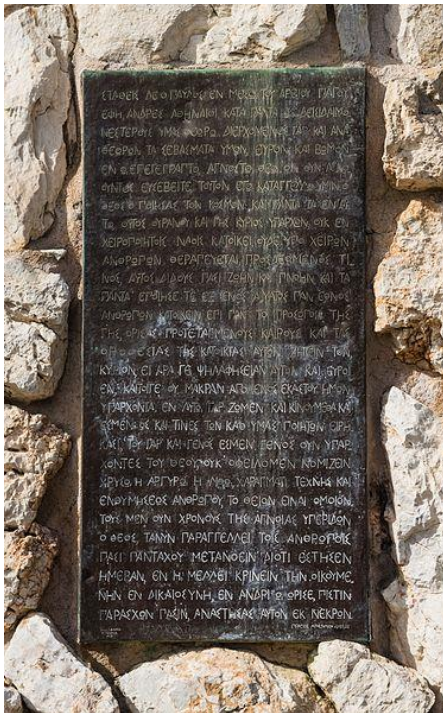 ΣΤΑΘΕΙΣ ΔΕ Ο ΠΑΥΛΟΣ ΕΝ ΜΕΣΩ ΤΟΥ ΑΡΕΙΟΥ ΠΑΓΟΥ
ΕΦΗ, ΑΝΔΡΕΣ ΑΘΗΝΑΙΟΙ ΚΑΤΑ ΠΑΝΤΑ ΩΣ ΔΕΙΣΙΔΑΙΜΟ
ΝΕΣΤΕΡΟΥΣ ΥΜΑΣ ΘΕΩΡΩ. ΔΙΕΡΧΟΜΕΝΟΣ ΓΑΡ ΚΑΙ ΑΝΑ
ΘΕΩΡΩΝ ΤΑ ΣΕΒΑΣΜΑΤΑ ΥΜΩΝ, ΕΥΡΟΝ ΚΑΙ ΒΩΜΟΝ
ΕΝ Ω ΕΠΕΓΕΓΡΑΠΤΟ, ΑΓΝΩΣΤΩ ΘΕΩ. ΟΝ ΟΥΝ ΑΓΝΟ
ΟΥΝΤΕΣ ΕΥΣΕΒΕΙΤΕ ΤΟΥΤΟΝ ΕΓΩ ΚΑΤΑΓΓΕΛΛΩ ΥΜΙΝ Ο
ΘΕΟΣ Ο ΠΟΙΗΣΑΣ ΤΟΝ ΚΟΣΜΟΝ ΚΑΙ ΠΑΝΤΑ ΤΑ ΕΝ ΑΥ
ΤΩ, ΟΥΤΟΣ ΟΥΡΑΝΟΥ ΚΑΙ ΓΗΣ ΚΥΡΙΟΣ ΥΠΑΡΧΩΝ, ΟΥΚ ΕΝ
ΧΕΙΡΟΠΟΙΗΤΟΙΣ ΝΑΟΙΣ ΚΑΤΟΙΚΕΙ ΟΥΔΕ ΥΠΟ ΧΕΙΡΩΝ
ΑΝΘΡΩΠΩΝ ΘΕΡΑΠΕΥΕΤΑΙ ΠΡΟΣΔΕΟΜΕΝΟΣ ΤΙ
ΝΟΣ, ΑΥΤΟΣ ΔΙΔΟΥΣ ΠΑΣΙ ΖΩΗΝ ΚΑΙ ΠΝΟΗΝ ΚΑΙ ΤΑ
ΠΑΝΤΑ ΕΠΟΙΗΣΕ ΤΕ ΕΞ ΕΝΟΣ ΑΙΜΑΤΟΣ ΠΑΝ ΕΘΝΟΣ
ΑΝΘΡΩΠΩΝ ΚΑΤΟΙΚΕΙΝ ΕΠΙ ΠΑΝ ΤΟ ΠΡΟΣΩΠΟΝ ΤΗΣ
ΓΗΣ, ΟΡΙΣΑΣ ΠΡΟΤΕΤΑΓΜΕΝΟΥΣ ΚΑΙΡΟΥΣ ΚΑΙ ΤΑΣ
ΟΡΟΘΕΣΙΑΣ ΤΗΣ ΚΑΤΟΙΚΙΑΣ ΑΥΤΩΝ, ΖΗΤΕΙΝ ΤΟΝ
ΚΥΡΙΟΝ, ΕΙ ΑΡΑ ΓΕ ΨΗΛΑΦΗΣΕΙΑΝ ΑΥΤΟΝ ΚΑΙ ΕΥΡΟΙ
ΕΝ, ΚΑΙΤΟΙΓΕ ΟΥ ΜΑΚΡΑΝ ΑΠΟ ΕΝΟΣ ΕΚΑΣΤΟΥ ΗΜΩΝ
ΥΠΑΡΧΟΝΤΑ, ΕΝ ΑΥΤΩ ΓΑΡ ΖΩΜΕΝ ΚΑΙ ΚΙΝΟΥΜΕΘΑ ΚΑΙ
ΕΣΜΕΝ, ΩΣ ΚΑΙ ΤΙΝΕΣ ΤΩΝ ΚΑΘ ΥΜΑΣ ΠΟΙΗΤΩΝ ΕΙΡΗ
ΚΑΣΙ, ΤΟΥ ΓΑΡ ΚΑΙ ΓΕΝΟΣ ΕΣΜΕΝ. ΓΕΝΟΣ ΟΥΝ ΥΠΑΡ
ΧΟΝΤΕΣ ΤΟΥ ΘΕΟΥ ΟΥΚ ΟΦΕΙΛΟΜΕΝ ΝΟΜΙΖΕΙΝ
ΧΡΥΣΩ Η ΑΡΓΥΡΩ Η ΛΙΘΩ, ΧΑΡΑΓΜΑΤΙ ΤΕΧΝΗΣ ΚΑΙ
ΕΝΘΥΜΗΣΕΩΣ ΑΝΘΡΩΠΟΥ, ΤΟ ΘΕΙΟΝ ΕΙΝΑΙ ΟΜΟΙΟΝ.
ΤΟΥΣ ΜΕΝ ΟΥΝ ΧΡΟΝΟΥΣ ΤΗΣ ΑΓΝΟΙΑΣ ΥΠΕΡΙΔΩΝ
Ο ΘΕΟΣ, ΤΑΝΥΝ ΠΑΡΑΓΓΕΛΛΕΙ ΤΟΙΣ ΑΝΘΡΩΠΟΙΣ
ΠΑΣΙ ΠΑΝΤΑΧΟΥ ΜΕΤΑΝΟΕΙΝ ΔΙΟΤΙ ΕΣΤΗΣΕΝ
ΗΜΕΡΑΝ, ΕΝ Η ΜΕΛΛΕΙ ΚΡΙΝΕΙΝ ΤΗΝ ΟΙΚΟΥΜΕ
ΝΗΝ ΕΝ ΔΙΚΑΙΟΣΥΝΗ, ΕΝ ΑΝΔΡΙ Ω ΩΡΙΣΕ, ΠΙΣΤΙΝ
ΠΑΡΑΣΧΩΝ ΠΑΣΙΝ, ΑΝΑΣΤΗΣΑΣ ΑΥΤΟΝ ΕΚ ΝΕΚΡΩΝ